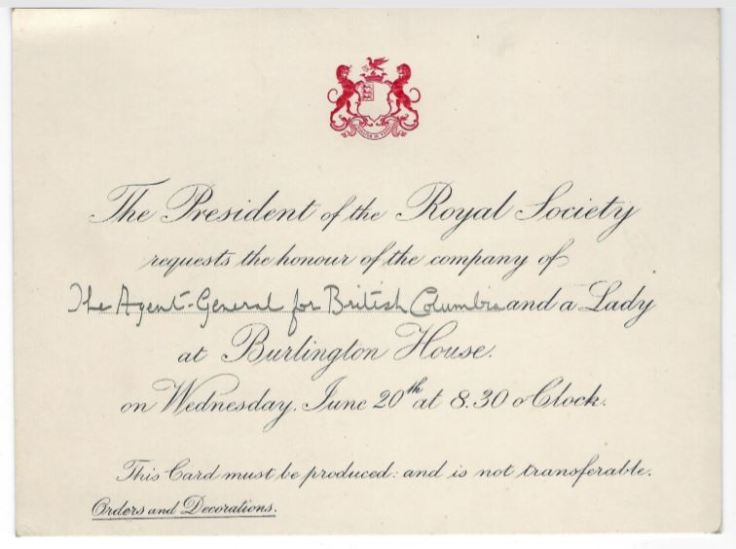 The President of the Royal Society
requests the honour of the company of
The Agent-General for British Columbia and a Lady
at Burlington House.
on Wednesday, June 20th at 8.30 o'Clock.
This Card must be produced: and is not transferable.
Orders and Decorations.